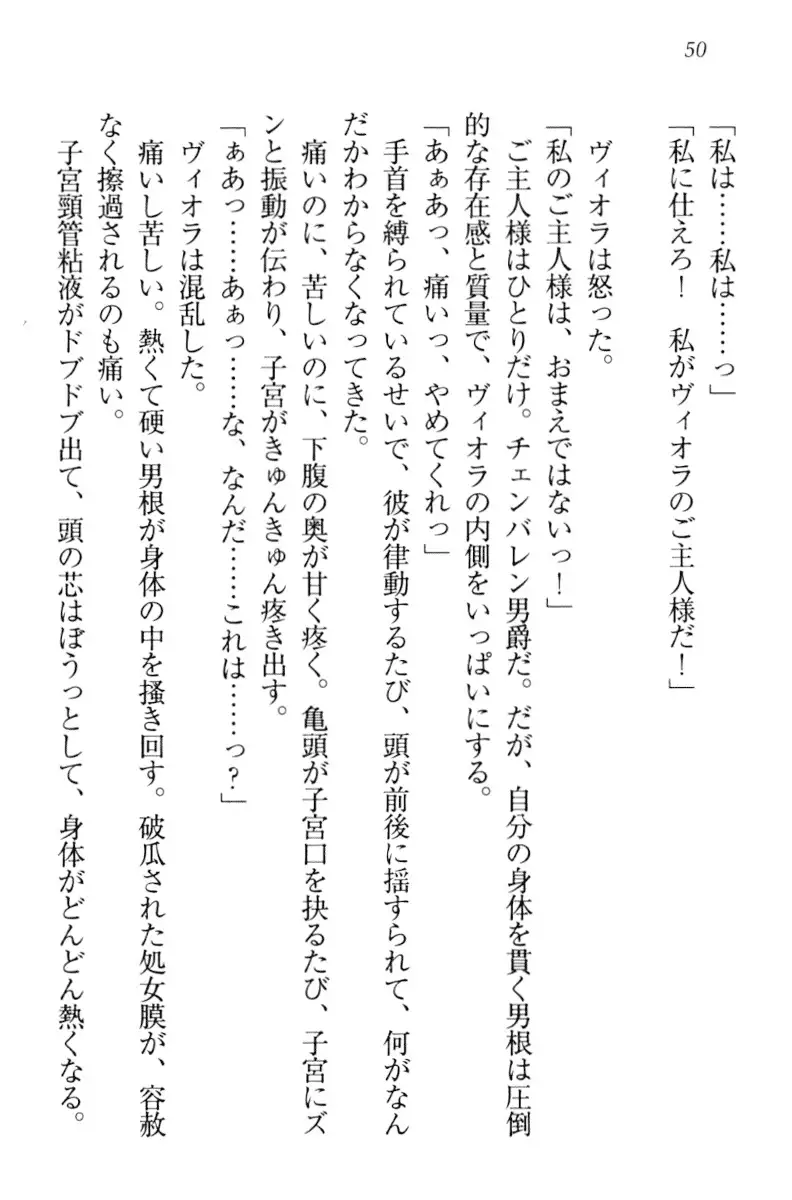 50
「私は……私は……っ」
「私に仕えろ！　私がヴィオラのご主人様だ！」
ヴィオラは怒った。
「私のご主人様は、おまえではないっ！」
ご主人様はひとりだけ。チェンバレン男爵だ。だが、自分の身体を貫く男根は圧倒
的な存在感と質量で、ヴィオラの内側をいっぱいにする。
「あぁあっ、痛いっ、やめてくれっ」
手首を縛られているせいで、彼が律動するたび、頭が前後に揺すられて、何がなん
だかわからなくなってきた。
痛いのに、苦しいのに、下腹の奥が甘く疼く。亀頭が子宮口を抉るたび、子宮にズ
ンと振動が伝わり、子宮がきゅんきゅん疼き出す。
「ぁあっ……あぁっ……な、なんだ……これは……っ？」
ヴィオラは混乱した。
痛いし苦しい。熱くて硬い男根が身体の中を掻き回す。破瓜された処女膜が、容赦
なく擦過されるのも痛い。
子宮頸管粘液がドブドブ出て、頭の芯はぼうっとして、身体がどんどん熱くなる。